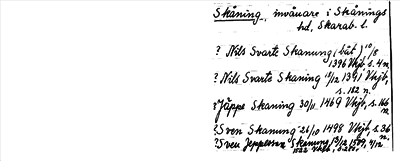 Skåning, invånare i Skånings
hd, Skarab. l.
? Nils Svarte Skanung (båt) 10/8
1396 Vkjb, s. 4 n.
? Nils Svarte Skaning 12/12 1391 Vkjb,
s. 182 n.
? Jäppe Skaning 30/11 1469 Vkjb, s. 166
n.
? Sven Skanung 26/10 1498 Vkjb, s. 36
n.
? Sven Jeppsson Skaning 1509, 4/12
1522